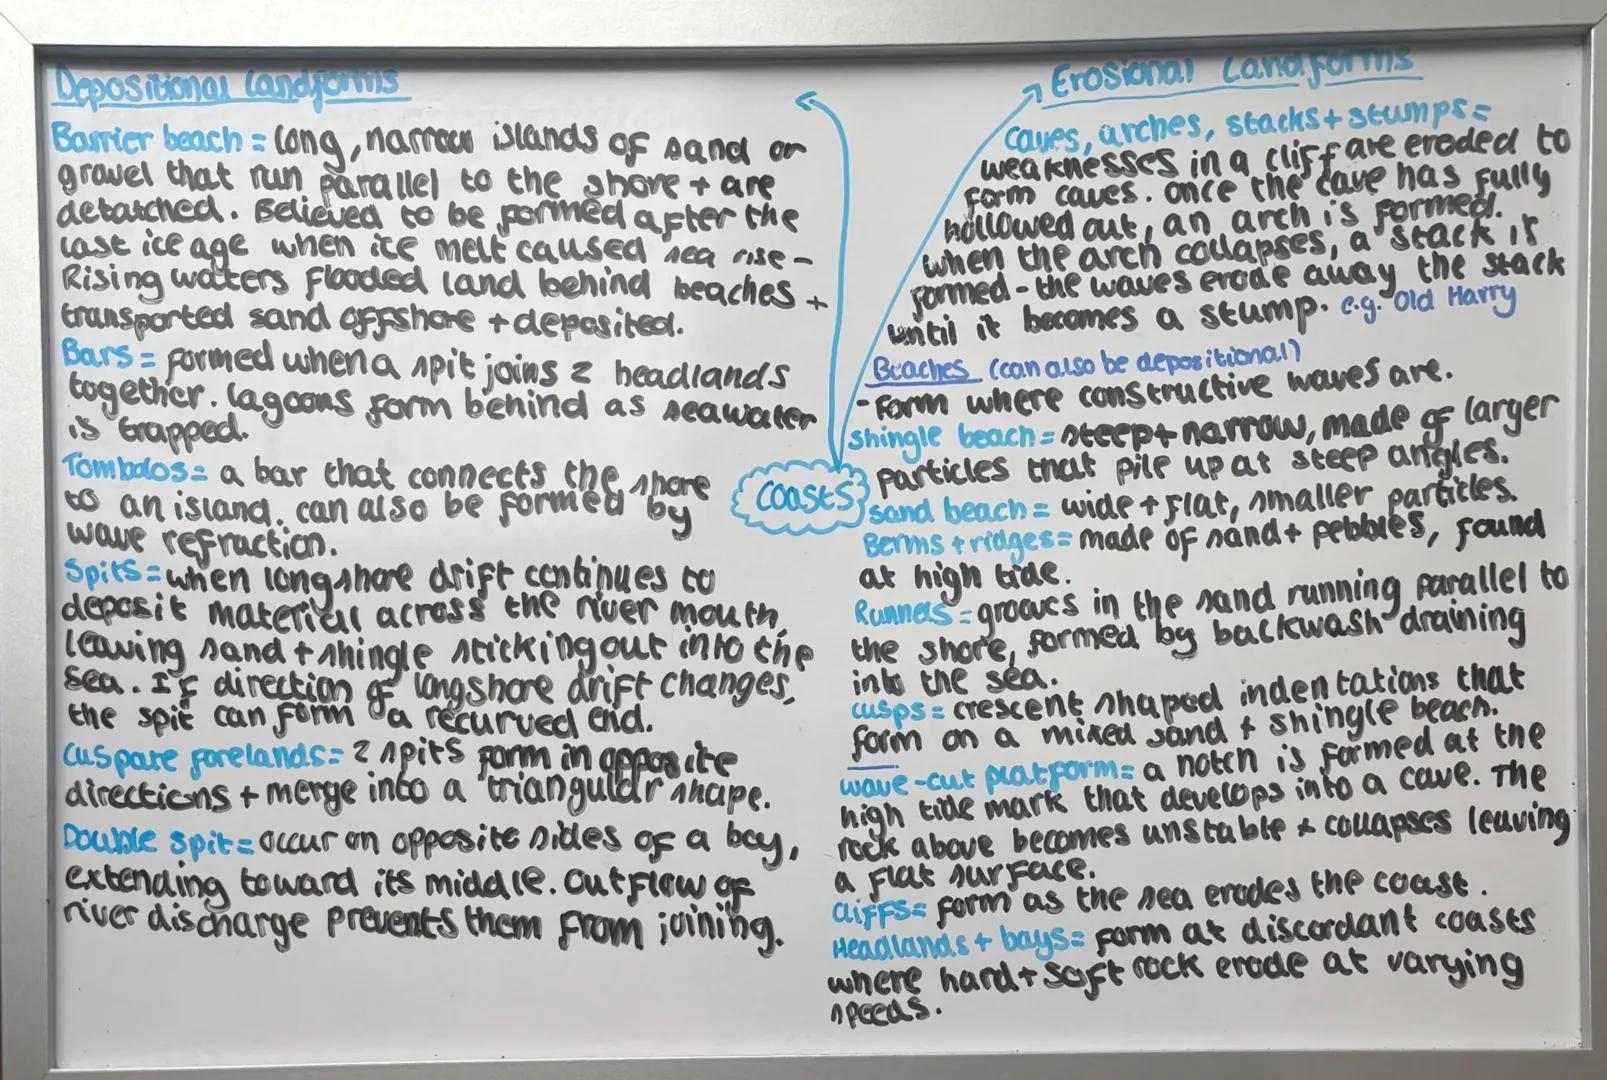 Depositional Landforms
Barrier beach = long, narrow islands of sand or
gravel that run parallel to the shore + are
detatched. Believed to be formed after the
last ice age when ice melt caused sea rise -
Rising waters flooded land behind beaches +
transported sand offshore + deposited.
Bars = formed when a spit joins 2 headlands
together. lagoons form behind as seawater
is trapped.
Tombolos = a bar that connects the shore
to an island. can also be formed by
wave refraction.
Spits = when longshore drift continues to
deposit material across the river mouth,
leaving sand + shingle sticking out into the
sea. If direction of longshore drift changes,
the spit can form a recurved end.
Cuspate forelands = 2 spits form in opposite
directions + merge into a triangular shape.
Double spit = occur on opposite sides of a bay,
extending toward its middle. Outflow of
river discharge prevents them from joining.
COASTS
Erosional Landforms
caves, arches, stacks + stumps =
weaknesses in a cliff are eroded to
form caves. once the cave has fully
hollowed out, an arch is formed.
when the arch collapses, a stack is
formed - the waves erode away the stack
until it becomes a stump. e.g. Old Harry
Beaches (can also be depositional)
- Form where constructive waves are.
shingle beach = steep + narrow, made of larger
particles that pile up at steep angles.
sand beach = wide + flat, smaller particles.
Berms + ridges = made of sand + pebbles, found
at high tide.
Runnels = grooves in the sand running parallel to
the shore, formed by backwash draining
into the sea.
cusps = crescent shaped indentations that
form on a mixed sand + shingle beach.
wave-cut platform = a notch is formed at the
high tide mark that develops into a cave. The
rock above becomes unstable + collapses leaving
a flat surface.
cliffs = form as the sea erodes the coast.
Headlands + bays = form at discordant coasts
where hard + soft rock erode at varying
speeds.